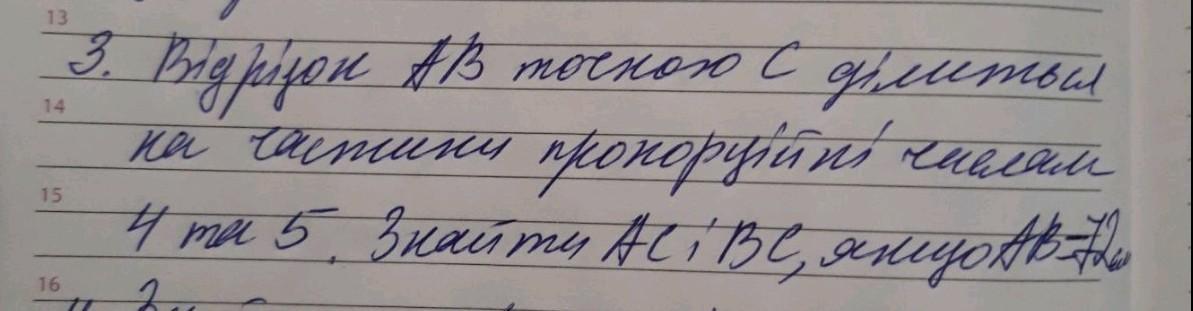 13
3. Відрізок АВ точкою С ділиться
14
на частини пропорційні числам
15
4 та 5. Знайти АС і ВС, якщо АВ=72см
16